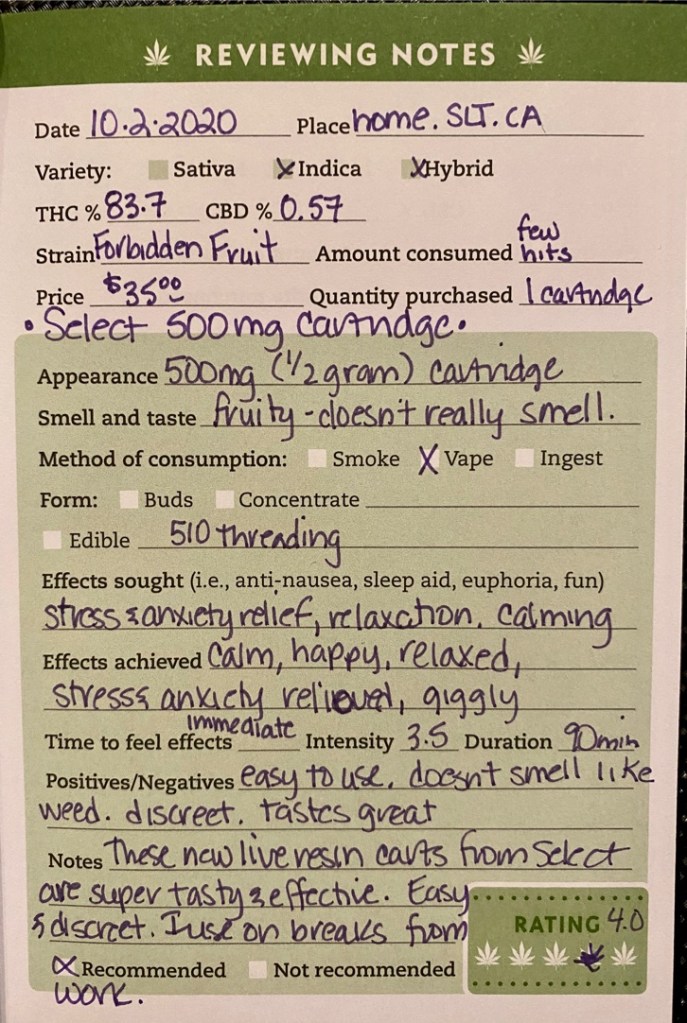 REVIEWING NOTES
Date 10.2.2020 Place home. SLT. CA
Variety: Sativa Indica Hybrid
THC % 83.7 CBD % 0.57
Strain Forbidden Fruit Amount consumed few hits
Price $35.00 Quantity purchased 1 cartridge
• Select 500mg cartridge •
Appearance 500mg (1/2 gram) cartridge
Smell and taste fruity - doesn't really smell.
Method of consumption: Smoke X Vape Ingest
Form: Buds Concentrate
Edible 510 threading
Effects sought (i.e., anti-nausea, sleep aid, euphoria, fun)
stress & anxiety relief, relaxation, calming
Effects achieved calm, happy, relaxed,
stress & anxiety relieved, giggly
Time to feel effects immediate Intensity 3.5 Duration 90min
Positives/Negatives easy to use. doesn't smell like
weed. discreet. tastes great
Notes These new live resin carts from Select
are super tasty & effective. Easy
& discreet. I use on breaks from
RATING 4.0
X Recommended Not recommended
work.